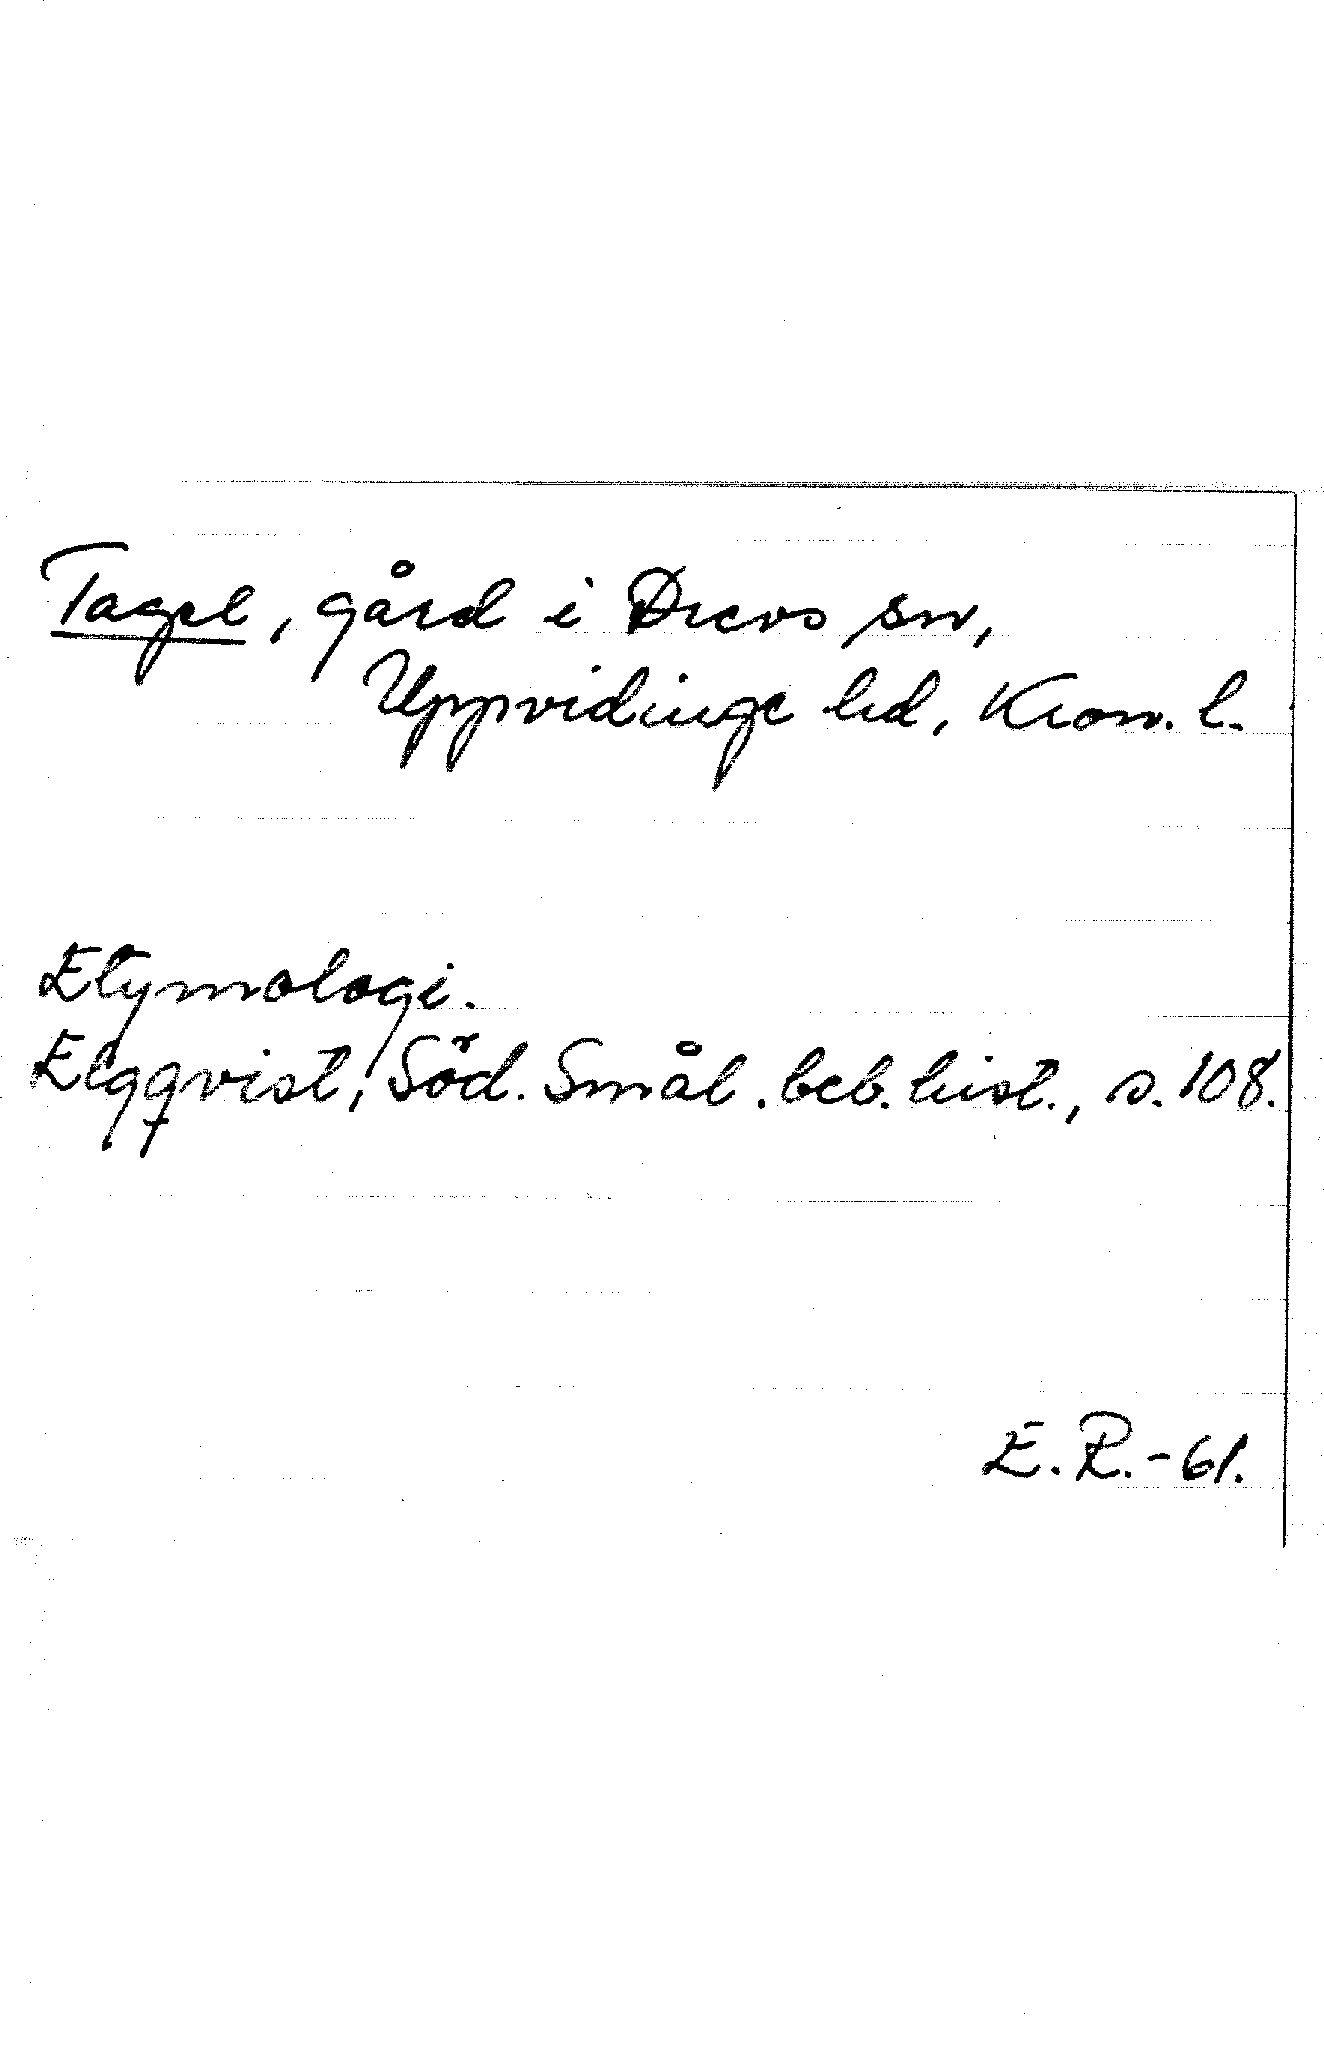 Tagel, gård i Drevs sn,
Uppvidinge hd, Kron. l.
Etymologi.
Elgqvist, Söd. Smål. beb. hist., s. 108.
E. R. -61.